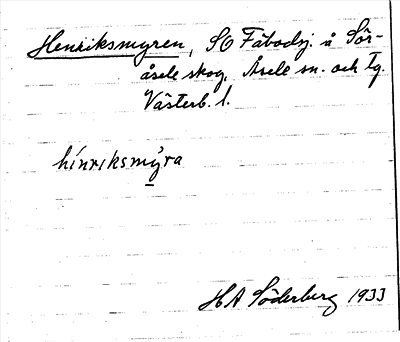 Henriksmyren, SO Fäbodsj. å Sör-
åsele skog, Åsele sn. och tg.
Västerb. l.
hínriksmỳ̱ra
HA Söderberg 1933